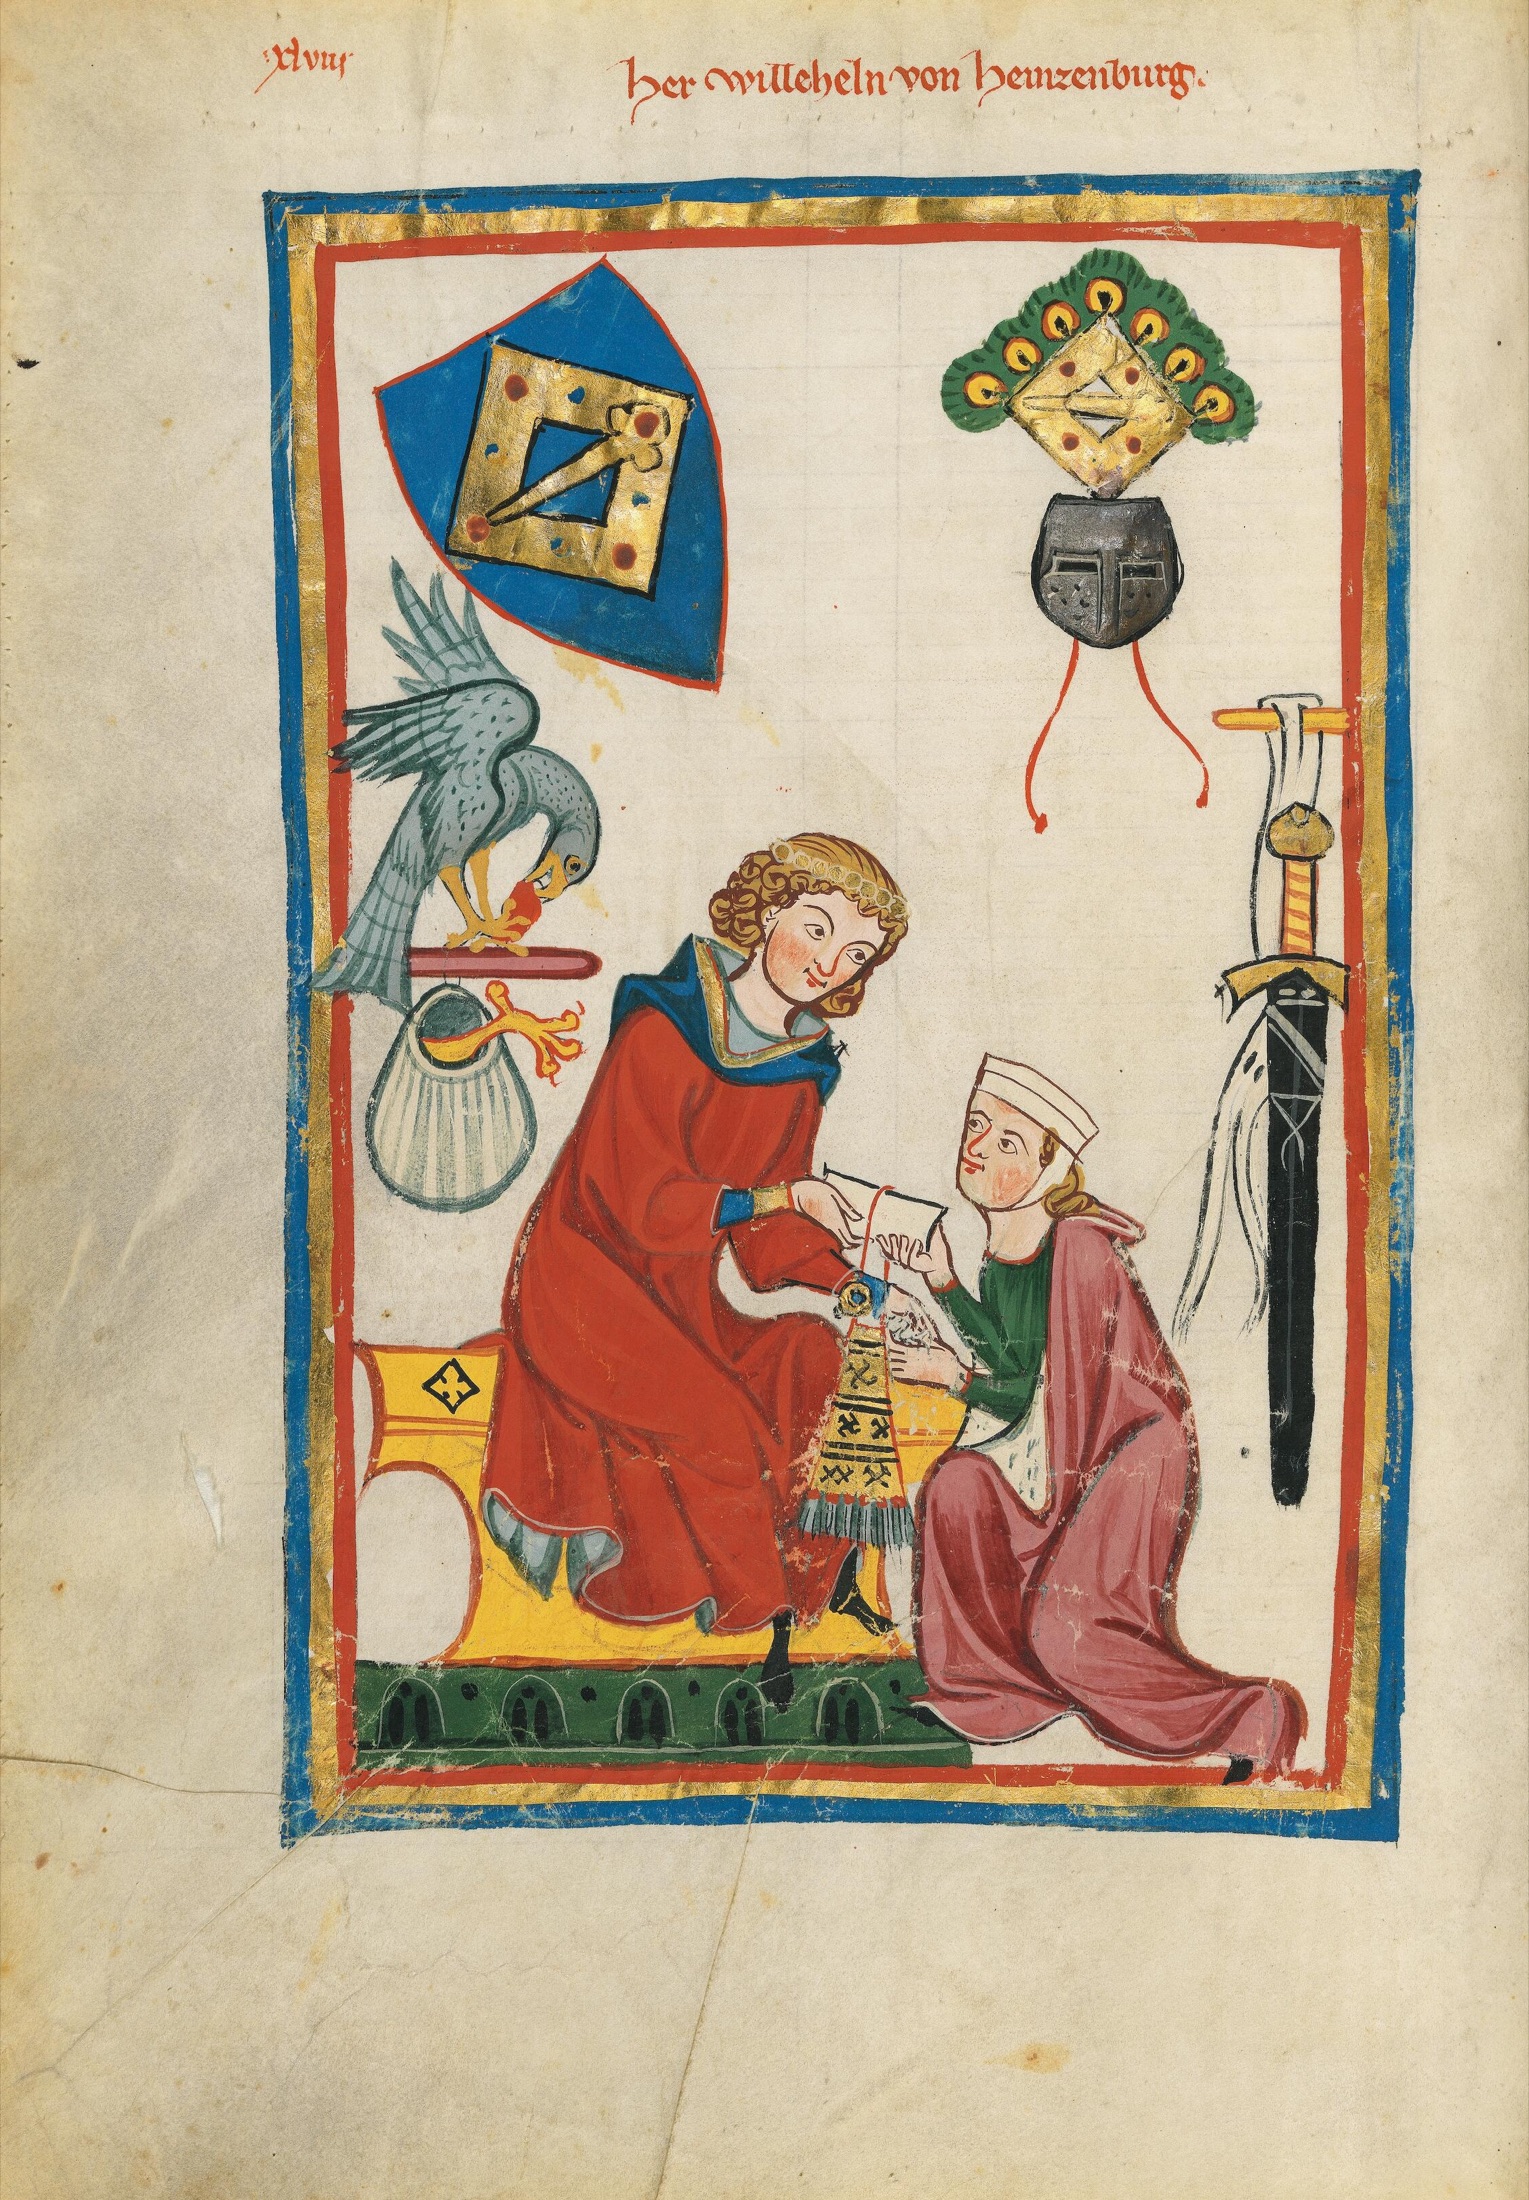 xlviij
her willeheln von heinzenburg.